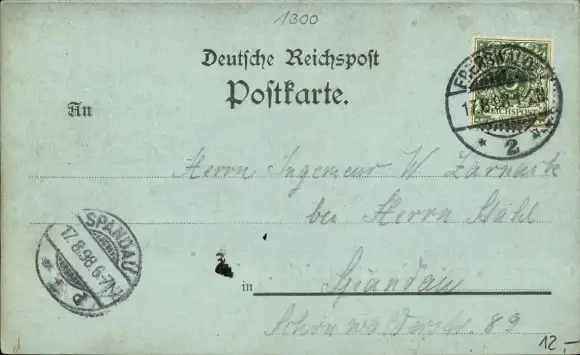 1300
Deutsche Reichspost
Postkarte.
An
EBERSWALDE
17.8.98
REICHSPOST
* 2 *
Herrn Ingenieur W Zarnack
bei Herrn Stahl
in Spandau
89
SPANDAU
17.8.98 6-7N
12,-